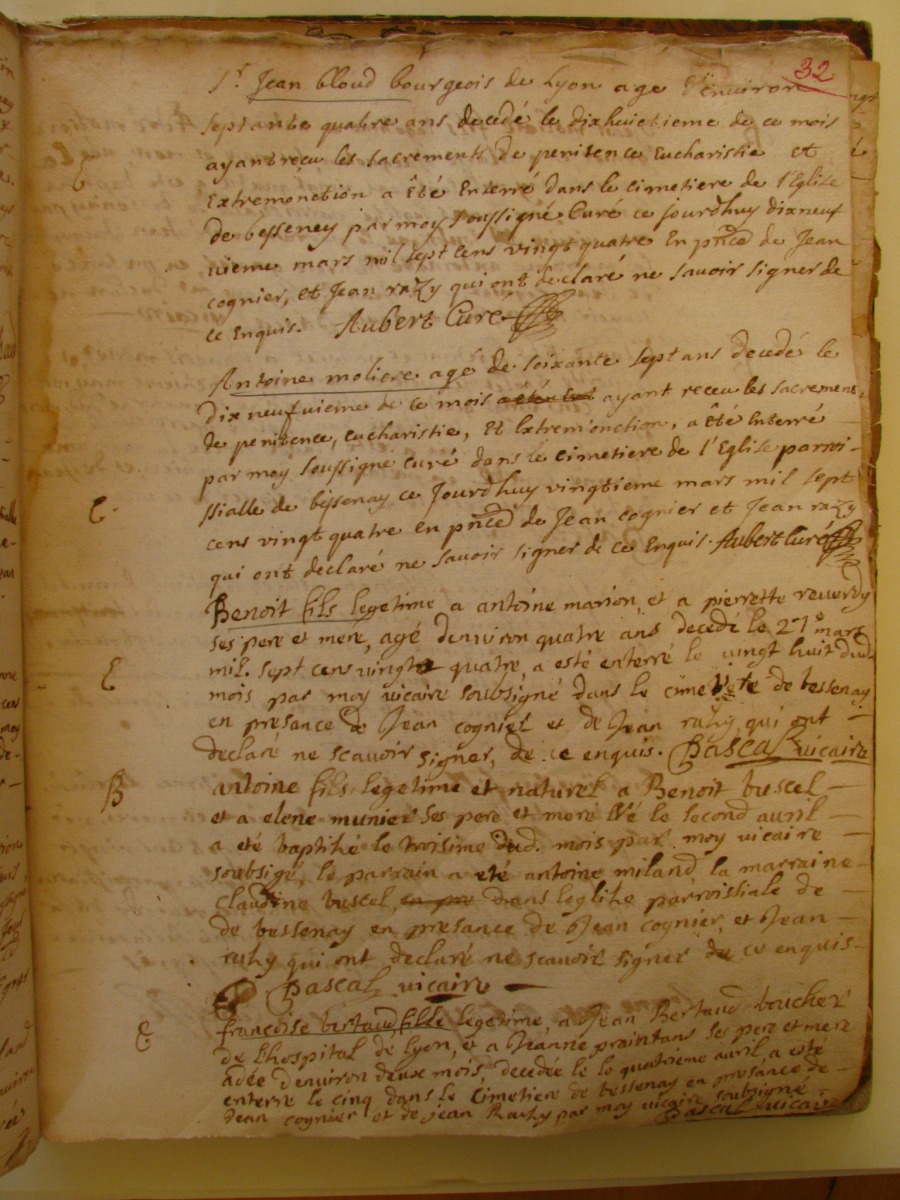 32
Sr. Jean bloud bourgeois de Lyon age d'environ
septante quatre ans decedé le dixhuictieme de ce mois
ayant reçu les sacrements de penitence Eucharistie et
Extremonction a Été Enterré dans le cimetiere de l'Eglise
de besseney par moy soussigné Curé ce jourdhuy dixneuf
vieme mars mil sept cens vingt quatre En pñce de Jean
cognier, et Jean razy qui ont declaré ne savoir signer de
ce Enquis. Aubert Curé
Antoine moliere agé de soixante sept ans decedé le
dix neufvieme de ce mois ayant receu les sacremens
de penitence, eucharistie, Et Extremonction, a Eté Enterré
par moy soussigné Curé dans le cimetiere de l'Eglise parroi-
ssialle de bessenay ce Jourdhuy vingtieme mars mil sept
E.
cens vingt quatre en pñce de Jean cognier et Jean razy
qui ont declaré ne savoir signer de ce Enquis. Aubert Curé
Benoit fils legetime a antoine marion, et a pierrette reverdy
ses pere et mere, agé denviron quatre ans decedé le 27e mars
E
mil. sept cens vingt quatre, a esté enterré le vingt huit dud.
mois par moy vicaire soubsigné dans le cimetiere de bessenay
en presance de Jean cognier et de Jean rahy qui ont
declaré ne scavoir signer, de ce enquis. Pascal vicaire
B
antoine fils legetime et naturel a Benoit buscel
et a elene munier ses pere et mere né le second avril
a eté baptihé le troisime dud. mois par moy vicaire
soubsigé, le parrain a eté antoine miland la marraine
Claudine buscel, en pre dans leglihe parroissiale de
de bessenay en presance de Jean cognier, et Jean
rahy qui ont declaré ne scavoir signer de ce enquis
Pascal vicaire
E
francoise bertaud fille legetime, a Jean Bertaud boucher
de Lhospital de lyon, et a Jeanne praintans ses pere et mere
adée denviron deux mois, decedée le le quatrieme avril, a esté
enterre le cinq dans le Cimetiere de bessenay en presance de
Jean cognier et de jean Rahy par moy vicaire soubsigné
Pascal vicaire